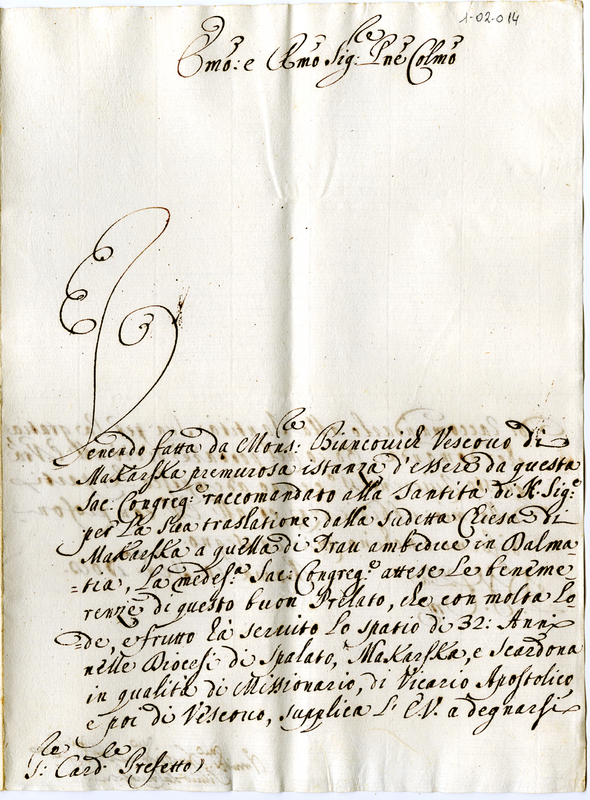 1-02-014
Emo: e Rmo Sig:re Pne Colmo
Venendo fatta da Mons:re Biancovich Vescovo di
Makarska premurosa istanza d'essere da questa
Sac: Congreg:e raccomandato alla Santità di N: Sig:e
per la sua traslatione dalla sudetta Chiesa di
Makarska a quella di Trau ambedue in Dalma-
-tia, la medes:a Sac: Congreg:e attese le beneme
renze di questo buon Prelato, che con molta lo-
-de, e frutto hà servito lo spatio di 32: Anni
nelle Diocesi di Spalato, Makarska, e Scardona
in qualità di Missionario, di Vicario Apostolico
e poi di Vescovo, supplica l'E.V. a degnarsi
S:re Card:le Prefetto